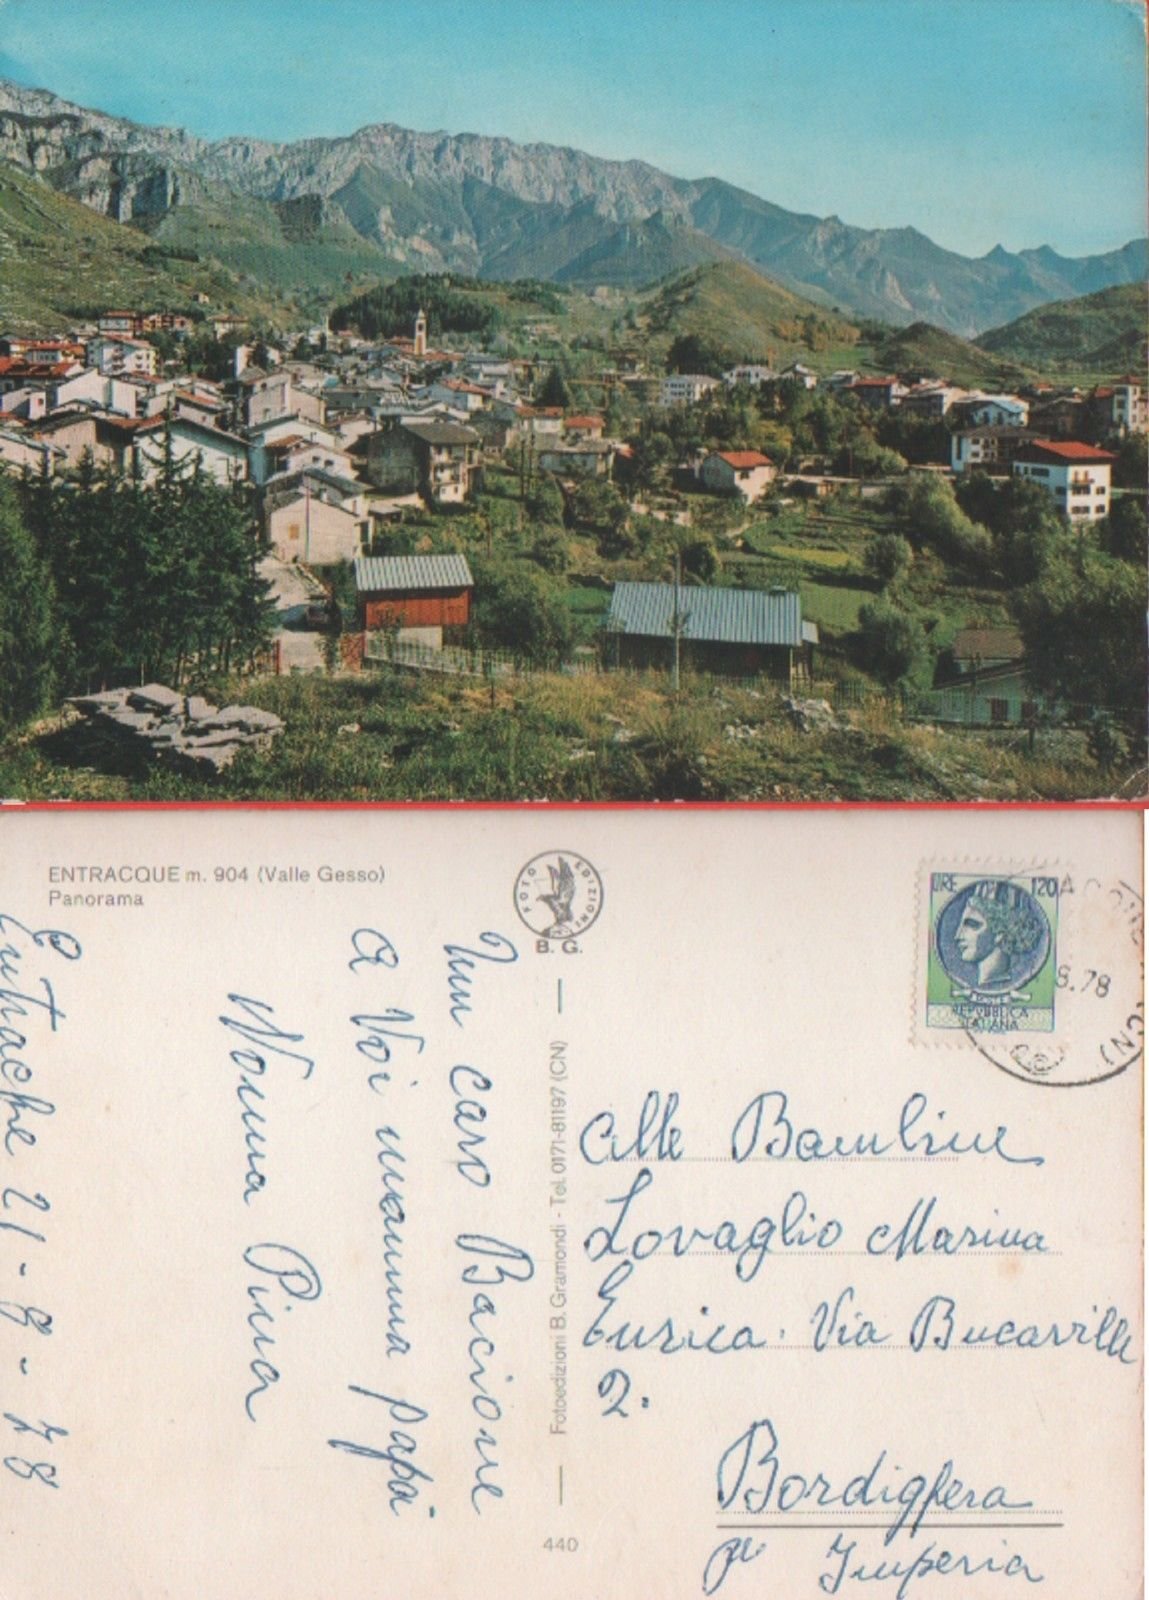 ENTRACQUE m. 904 (Valle Gesso)
Panorama
FOTO EDIZIONI
B. G.
LIRE 120
REPVBBLICA
ITALIANA
8.78
(CN)
Entracke 21-8-78
Un caro Bacione
a Voi mamma papà
Nonna Pina
Fotoedizioni B. Gramondi - Tel. 0171-81197 (CN)
440
Alle Bambine
Lovaglio Marina
Enrica. Via Bucarille
2.
Bordighera
pr Imperia